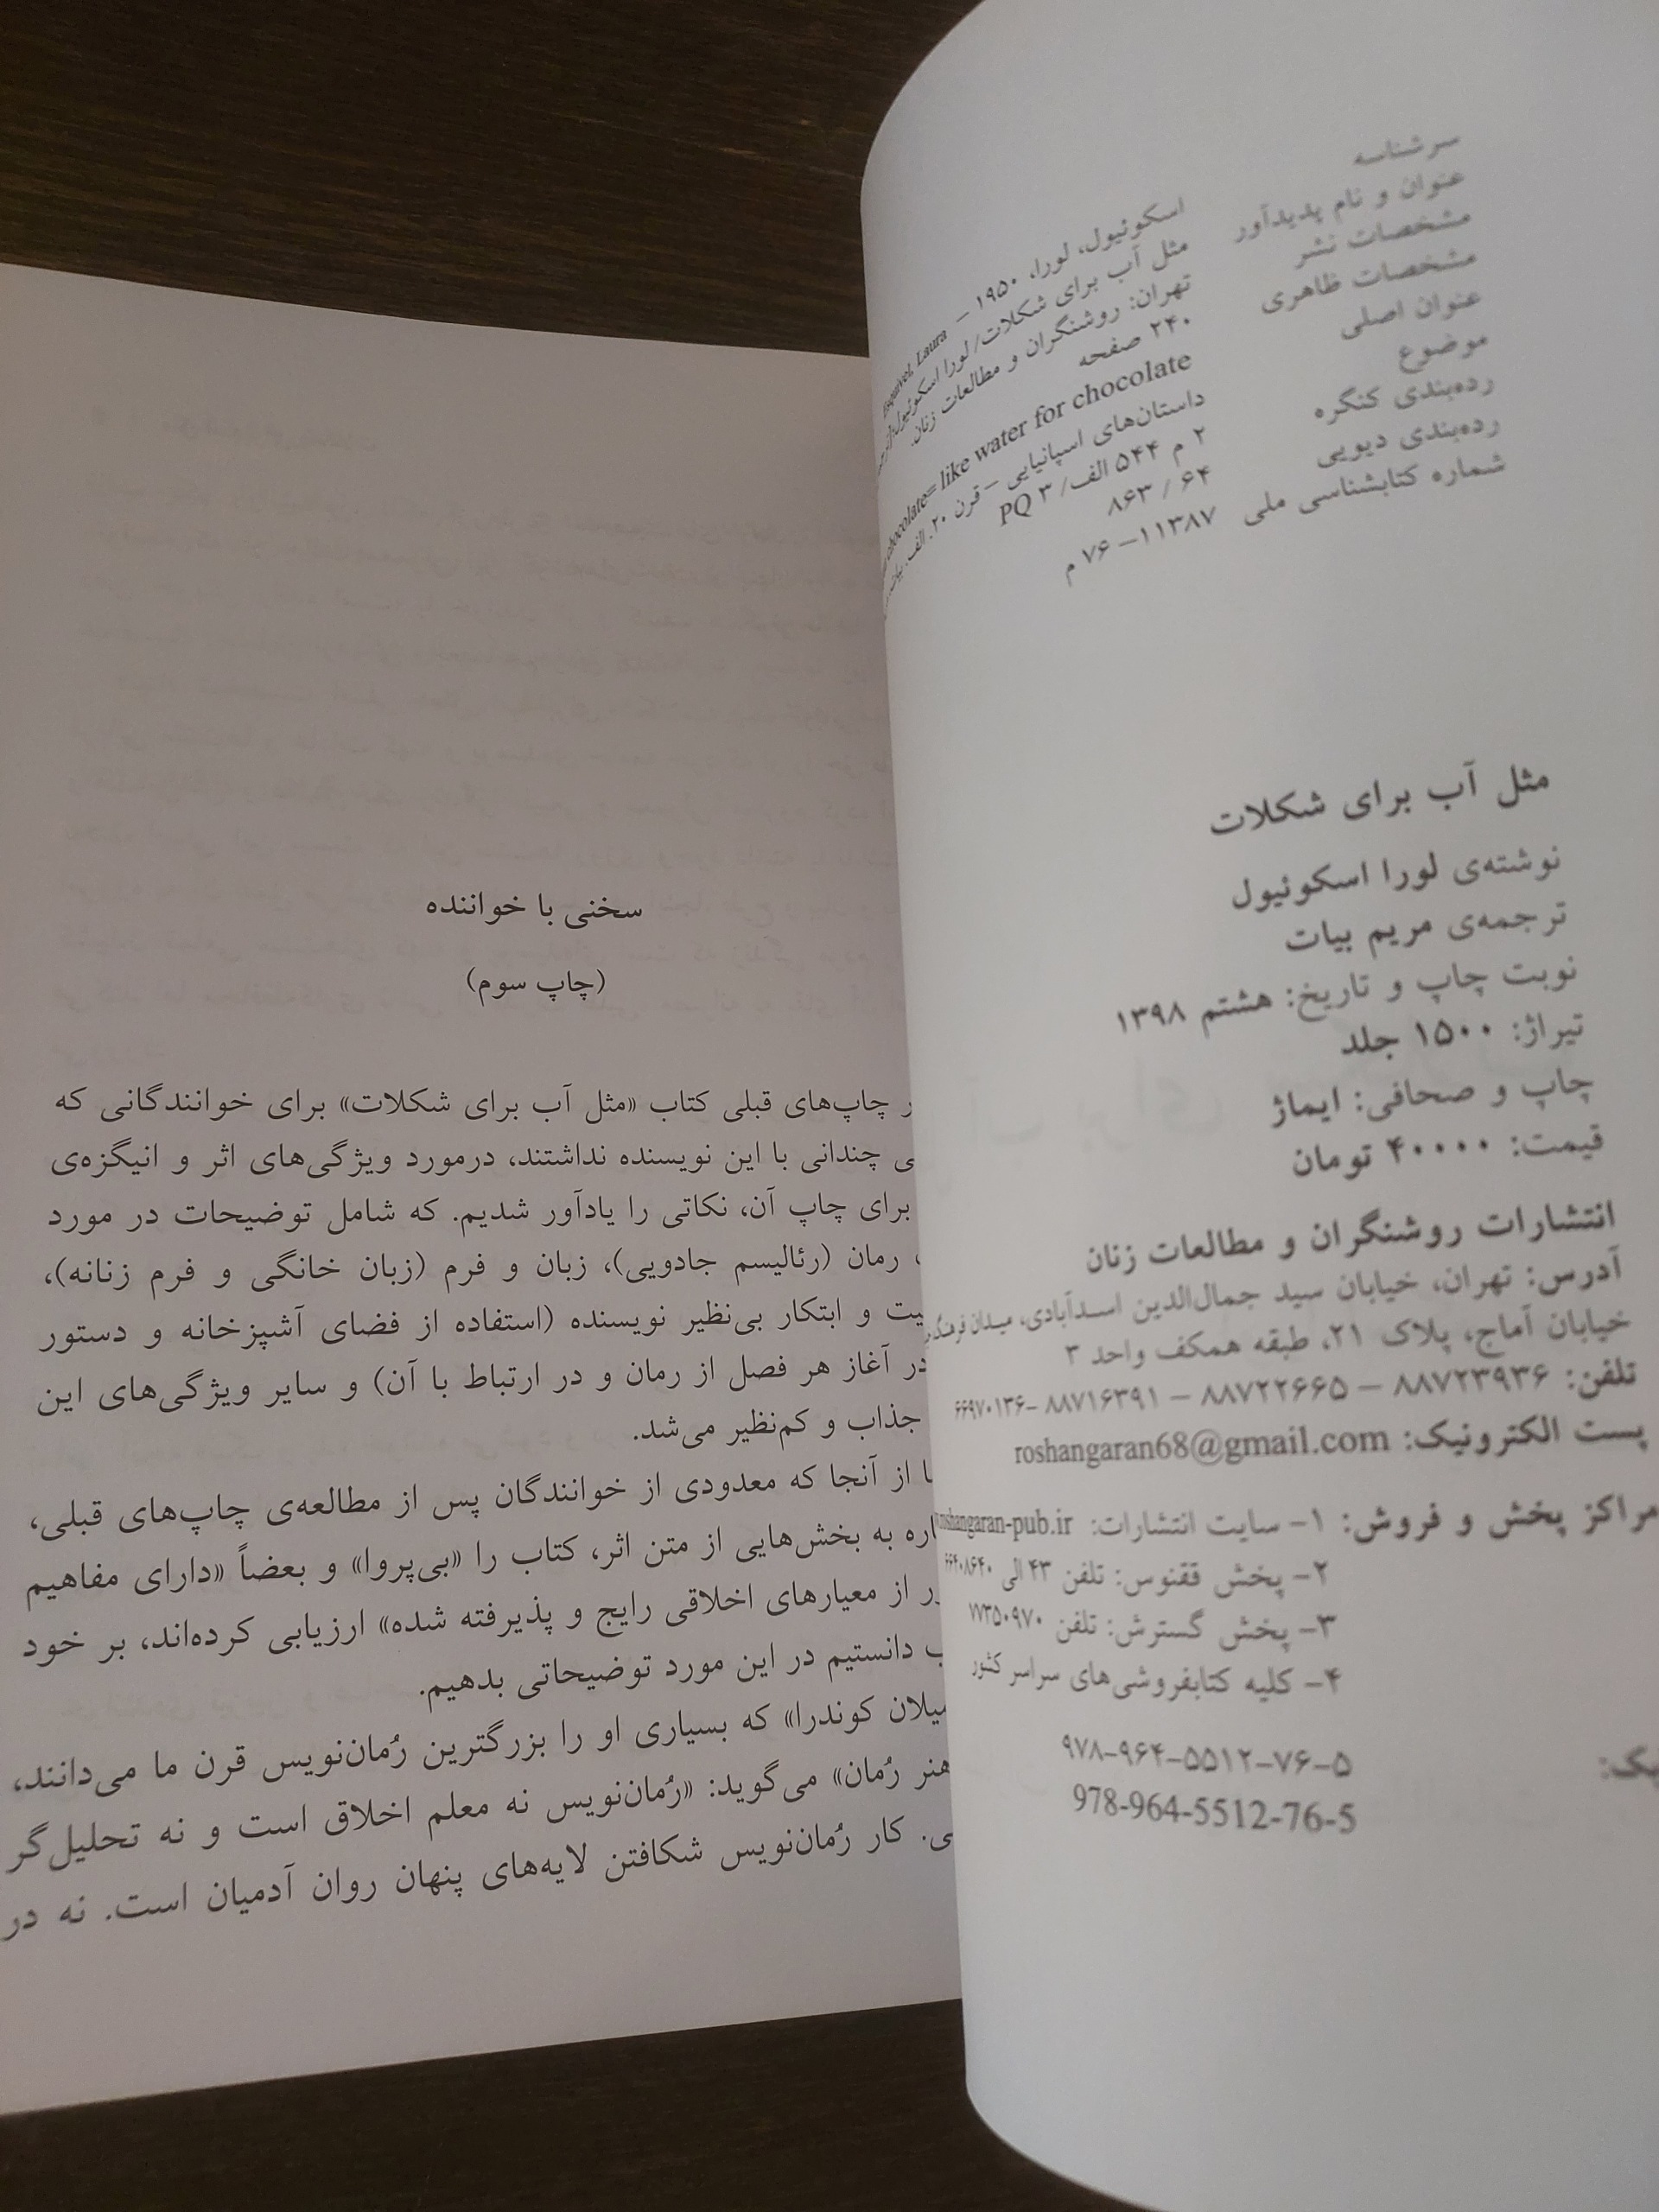 سرشناسه
اسکوئیول، لورا، ۱۹۵۰ – Esquivel, Laura
عنوان و نام پدیدآور
مثل آب برای شکلات/ لورا اسکوئیول؛
مشخصات نشر
تهران: روشنگران و مطالعات زنان.
مشخصات ظاهری
۲۴۰ صفحه
عنوان اصلی
chocolate= like water for chocolate
موضوع
داستان‌های اسپانیایی – قرن ۲۰. الف.
رده‌بندی کنگره
۲ م ۵۴۴ الف/ ۳ PQ
رده‌بندی دیویی
۶۴ / ۸۶۳
شماره کتابشناسی ملی
۱۱۳۸۷– ۷۶ م
مثل آب برای شکلات
نوشته‌ی لورا اسکوئیول
ترجمه‌ی مریم بیات
نوبت چاپ و تاریخ: هشتم ۱۳۹۸
تیراژ: ۱۵۰۰ جلد
چاپ و صحافی: ایماژ
قیمت: ۴۰۰۰۰ تومان
انتشارات روشنگران و مطالعات زنان
آدرس: تهران، خیابان سید جمال‌الدین اسدآبادی، میدان
خیابان آماج، پلاک ۲۱، طبقه همکف واحد ۳
تلفن: ۸۸۷۲۳۹۳۶ – ۸۸۷۲۲۶۶۵ – ۸۸۷۱۶۳۹۱ –۶۶۹۷۰۱۳۶
پست الکترونیک: roshangaran68@gmail.com
مراکز پخش و فروش: ۱– سایت انتشارات: roshangaran-pub.ir
۲– پخش ققنوس: تلفن ۴۳ الی ۶۶۴۰۸۶۴۰
۳– پخش گسترش: تلفن ۷۷۳۵۰۹۷۰
۴– کلیه کتابفروشی‌های سراسر کشور
۹۷۸–۹۶۴–۵۵۱۲–۷۶–۵
978-964-5512-76-5
سخنی با خواننده
(چاپ سوم)
ر چاپ‌های قبلی کتاب «مثل آب برای شکلات» برای خوانندگانی که
ی چندانی با این نویسنده نداشتند، درمورد ویژگی‌های اثر و انیگزه‌ی
برای چاپ آن، نکاتی را یادآور شدیم. که شامل توضیحات در مورد
رمان (رئالیسم جادویی)، زبان و فرم (زبان خانگی و فرم زنانه)،
یت و ابتکار بی‌نظیر نویسنده (استفاده از فضای آشپزخانه و دستور
در آغاز هر فصل از رمان و در ارتباط با آن) و سایر ویژگی‌های این
جذاب و کم‌نظیر می‌شد.
ا از آنجا که معدودی از خوانندگان پس از مطالعه‌ی چاپ‌های قبلی،
اره به بخش‌هایی از متن اثر، کتاب را «بی‌پروا» و بعضاً «دارای مفاهیم
ر از معیارهای اخلاقی رایج و پذیرفته شده» ارزیابی کرده‌اند، بر خود
ب دانستیم در این مورد توضیحاتی بدهیم.
میلان کوندرا» که بسیاری او را بزرگترین رُمان‌نویس قرن ما می‌دانند،
هنر رُمان» می‌گوید: «رُمان‌نویس نه معلم اخلاق است و نه تحلیل‌گر
ی. کار رُمان‌نویس شکافتن لایه‌های پنهان روان آدمیان است. نه در